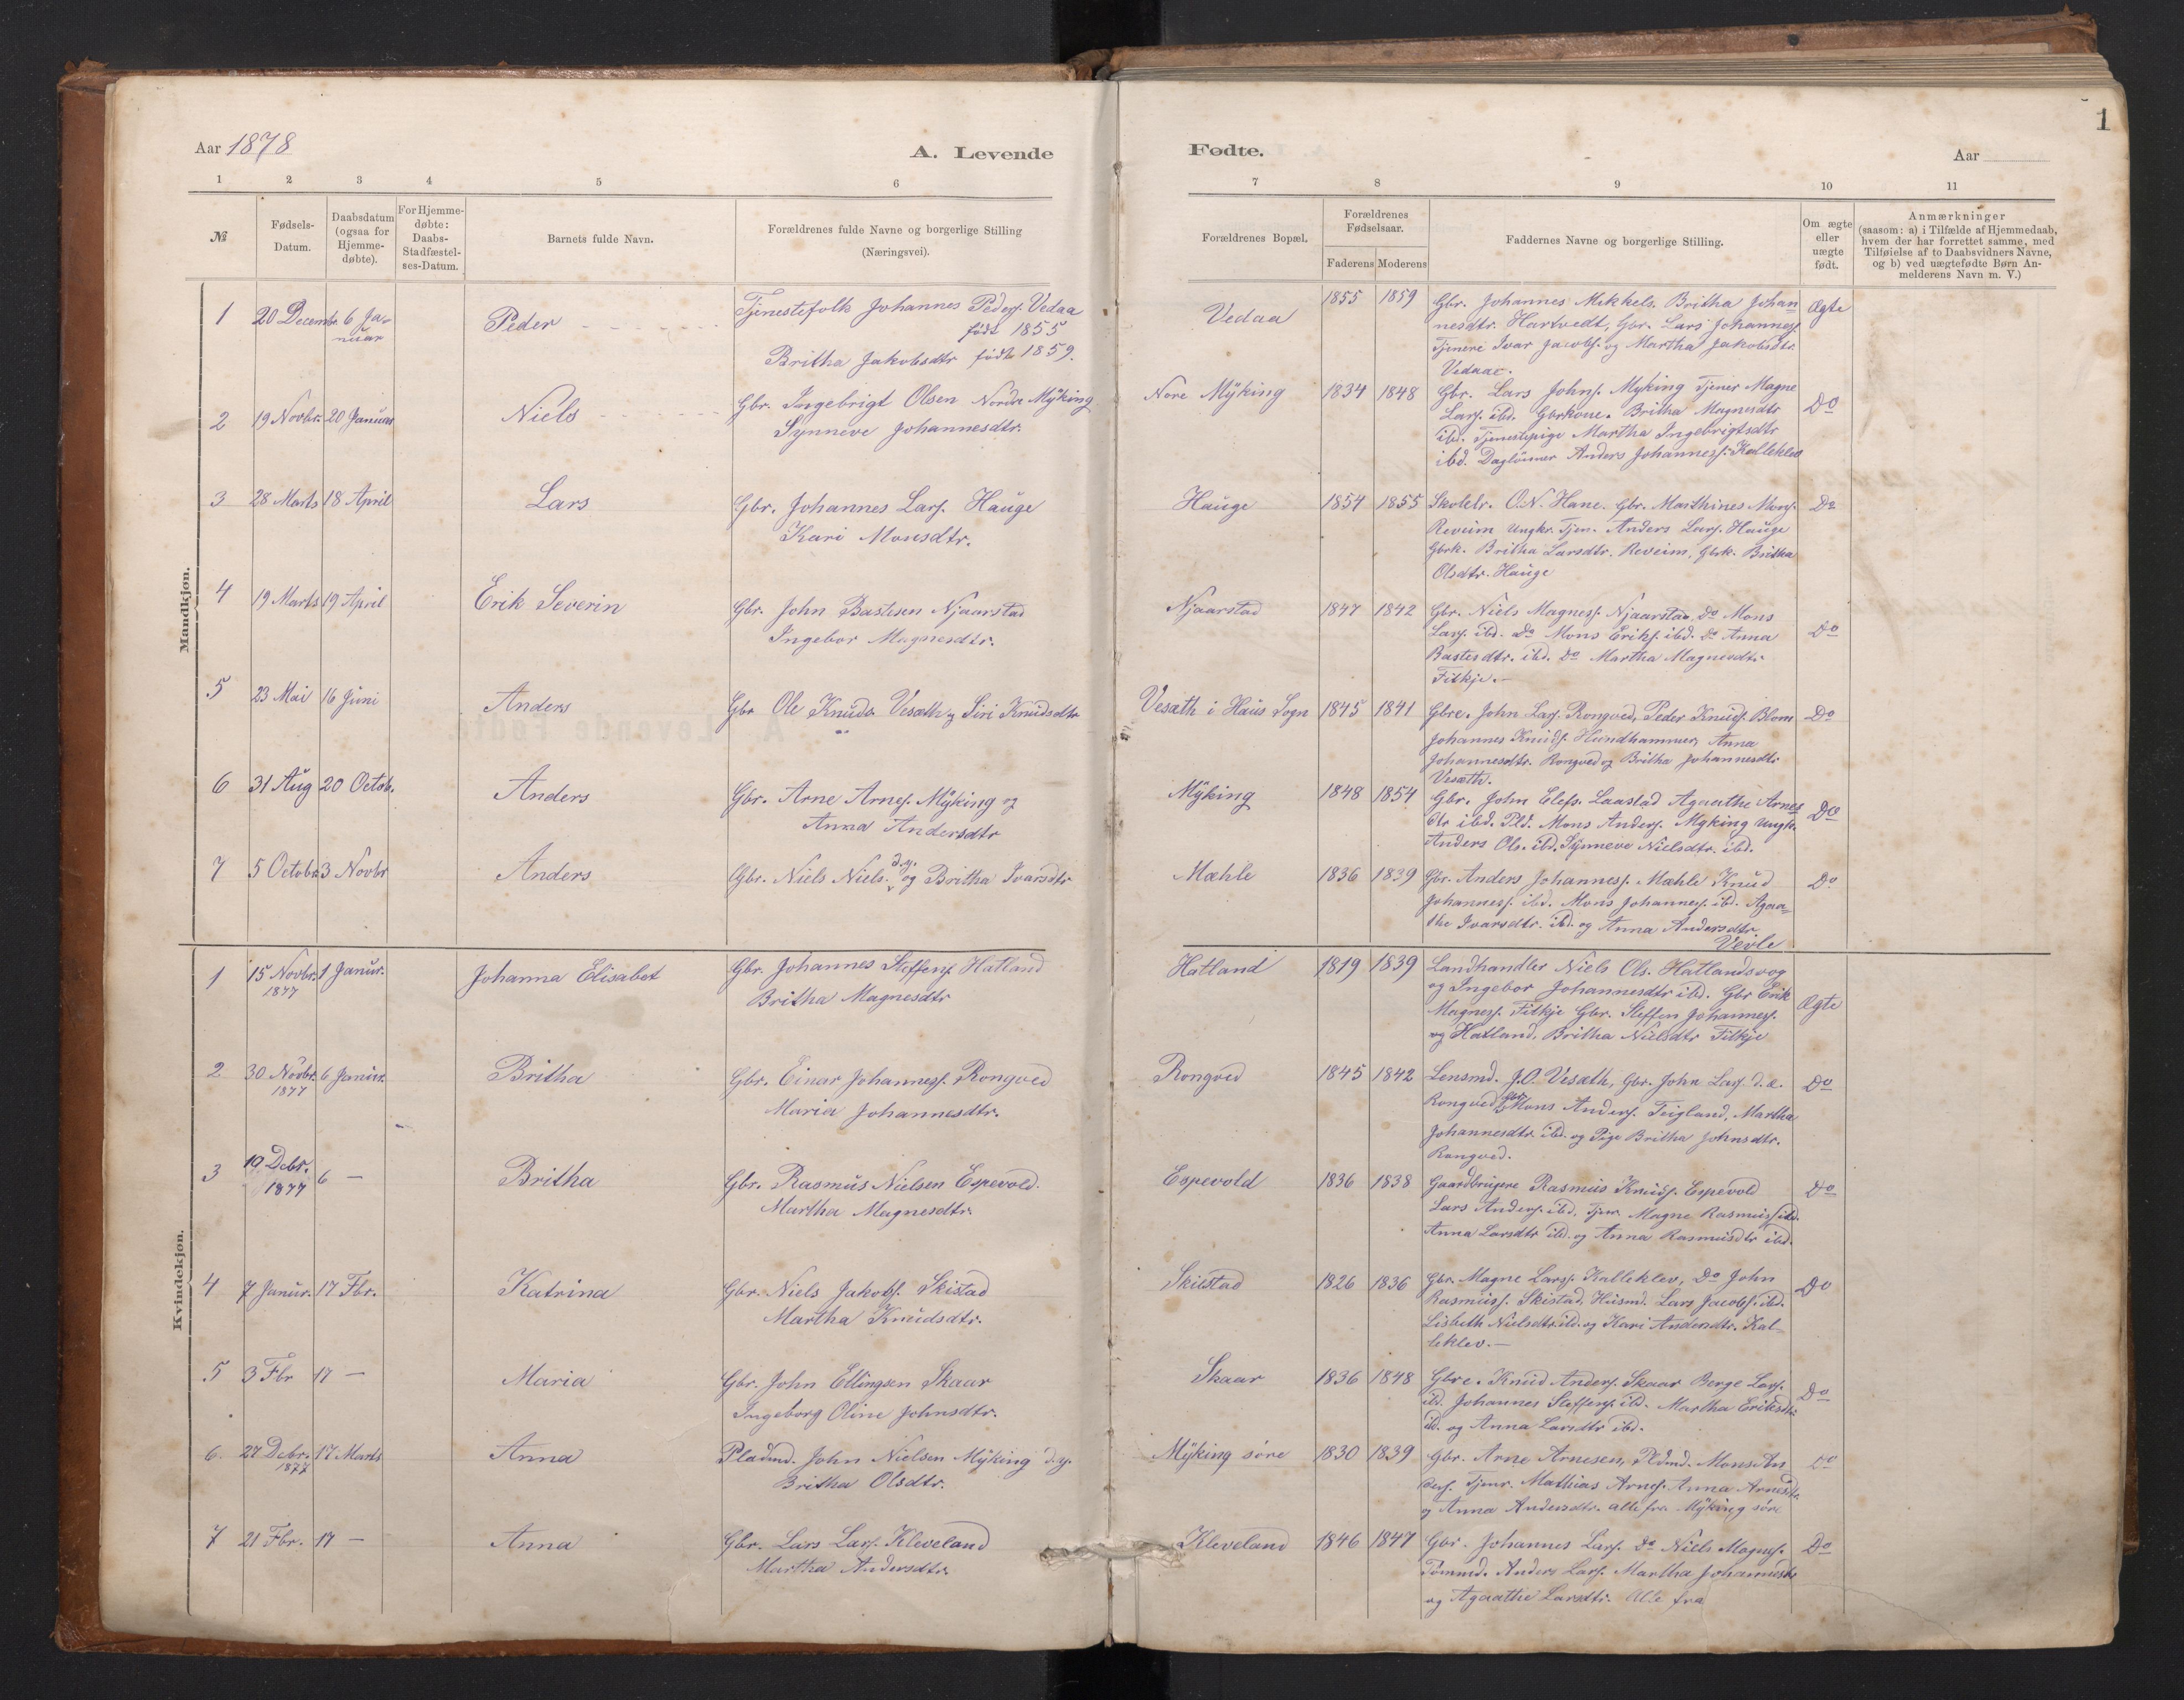 Aar 1878
A. Levende
Fødte.
Aar
1
1 2 3 4 5 6 7 8 9 10 11
№
Fødsels-
Datum.
Daabsdatum
(ogsaa for
Hjemme-
døbte).
For Hjemme-
døbte:
Daabs-
Stadfæstel-
ses-Datum.
Barnets fulde Navn.
Forældrenes fulde Navne og borgerlige Stilling
(Næringsvei).
Forældrenes Bopæl.
Forældrenes
Fødselsaar.
Faderens Moderens
Faddernes Navne og borgerlige Stilling.
Om ægte
eller
uægte
født.
Anmærkninger
(saasom: a) i Tilfælde af Hjemmedaab,
hvem der har forrettet samme, med
Tilføielse af to Daabsvidners Navne,
og b) ved uægtefødte Børn An-
melderens Navn m. V.)
Mandkjøn.
1 20 Decembr 6 Ja-
nuar
Peder
Tjenestefolk Johannes Peders. Vedaa
født 1855
Britha Jakobsdtr født 1859.
Vedaa 1855 1859
Gbr. Johannes Mikkels. Britha Johan
nesdtr. Hartvedt, Gbr. Lars Johanness.
Tjenere Ivar Jacobs. og Martha Jakobsdtr.
Vedaae.
Ægte
2 19 Novbr. 20 Januar
Niels
Gbr. Ingebrigt Olsen Nordre Mÿking
Synneve Johannesdtr.
Nore Mÿking 1834 1848
Gbr. Lars Johns. Myking Tjener Magne
Lars. ibd. Gbrkone. Britha Magnesdtr
ibd. Tjenestepige Martha Ingebrigtsdtr
ibd. Daglönner Anders Johanness. Kalleklev
Do
3 28 Marts 18 April
Lars
Gbr. Johannes Lars. Hauge
Kari Monsdtr.
Hauge 1854 1855
Skolelr. O.N. Hane. Gbr. Marthines Mons.
Reveim Ungkr. Tjen. Anders Lars. Hauge
Gbrk. Britha Larsdtr. Reveim, Gbrk. Britha
Olsdtr. Hauge
Do
4 19 Marts 19 April
Erik Severin
Gbr. John Bastesen Njaarstad
Ingebor Magnesdtr.
Njaarstad 1847 1842
Gbr. Niels Magness. Njaarstad, Do Mons
Lars. ibd. Do Mons Eriks. ibd. Do Anna
Bastesdtr. ibd. Do Martha Magnesdtr
Fitkje.
Do
5 23 Mai 16 Juni
Anders
Gbr Ole Knuds. Vesæth og Siri Knudsdtr
Vesæth i Haus Sogn 1845 1841
Gbre. John Lars. Rongved, Peder Knuds. Blom
Johannes Knuds. Hundhammer, Anna
Johannesdtr. Rongved og Britha Johannesdtr
Vesæth.
Do
6 31 Aug 20 Octob.
Anders
Gbr. Arne Arnes. Mÿking og
Anna Andersdtr
Mÿking 1848 1854
Gbr. John Elefs. Laastad Agaathe Arnes
dtr ibd. Pld. Mons Anders. Myking Ungk.
Anders Ols. ibd. Synneve Nielsdtr. ibd.
Do
7 5 Octobr 3 Novbr
Anders
Gbr. Niels Niels. d.y. og Britha Ivarsdtr
Mæhle 1836 1839
Gbr. Anders Johanness. Mæhle Knud
Johanness. ibd. Mons Johanness. ibd. Agaa-
the Ivarsdtr. ibd. og Anna Andersdtr
Vevle
Do
Kvindekjøn.
1 15 Novbr. 1877 1 Janur.
Johanna Elisabet
Gbr. Johannes Steffens. Hatland
Britha Magnesdtr
Hatland 1819 1839
Landhandler Niels Ols. Hatlandsvog
og Ingebor Johannesdtr ibd. Gbr Erik
Magness. Fitkje Gbr. Steffen Johanness.
og Hatland, Britha Nielsdtr Fitkje
Ægte
2 30 Novbr. 1877 6 Januar.
Britha
Gbr. Einar Johanness. Rongved
Maria Johannesdtr.
Rongved 1845 1842
Lensmd. J.O. Vesæth, Gbr. John Lars. d.æ.
Rongved Gbr Mons Anders. Teigland, Martha
Johannesdtr ibd. og Pige Britha Johnsdtr.
Rongved.
Do
3 19 Debr. 1877 6 —
Britha
Gbr. Rasmus Nielsen Espevold.
Martha Magnesdtr.
Espevold 1836 1838
Gaardbrugere Rasmus Knuds. Espevold
Lars Anders. ibd. Tjen. Magne Rasmuss. ibd.
Anna Larsdtr ibd. og Anna Rasmusdtr ibd.
Do
4 7 Januar. 17 Fbr.
Katrina
Gbr. Niels Jakobs. Skistad
Martha Knudsdtr.
Skistad 1826 1836
Gbr. Magne Larss. Kalleklev, Do John
Rasmuss. Skistad, Husmd. Lars Jacobs. ibd.
Lisbeth Nielsdtr. ibd. og Kari Andersdtr. Kal-
leklev. —
Do
5 3 Fbr 17 —
Maria
Gbr. John Ellingsen Skaar
Ingeborg Oline Johnsdtr.
Skaar 1836 1848
Gbre. Knud Anders. Skaar Berge Lars.
ibd. Johannes Steffens. ibd. Martha Eriksdtr.
ibd. og Anna Larsdtr ibd.
Do
6. 27 Debr. 1877 17 Marts
Anna
Pladmd. John Nielsen Mÿking d.y.
Britha Olsdtr.
Mÿking söre 1830 1839
Gbr. Arne Arnesen, Pldmd. Mons An
ders. Tjenr. Mathias Arnes. Anna Arnesdtr.
og Anna Andersdtr. alle fra Mÿking söre
Do
7 21 Fbr. 17 —
Anna
Gbr. Lars Lars. Kleveland
Martha Andersdtr.
Kleveland 1846 1847
Gbr. Johannes Lars. Do Niels Magnes.
Tömmd. Anders Lars. Martha Johannesdtr
og Agaathe Larsdtr. Alle fra
Do